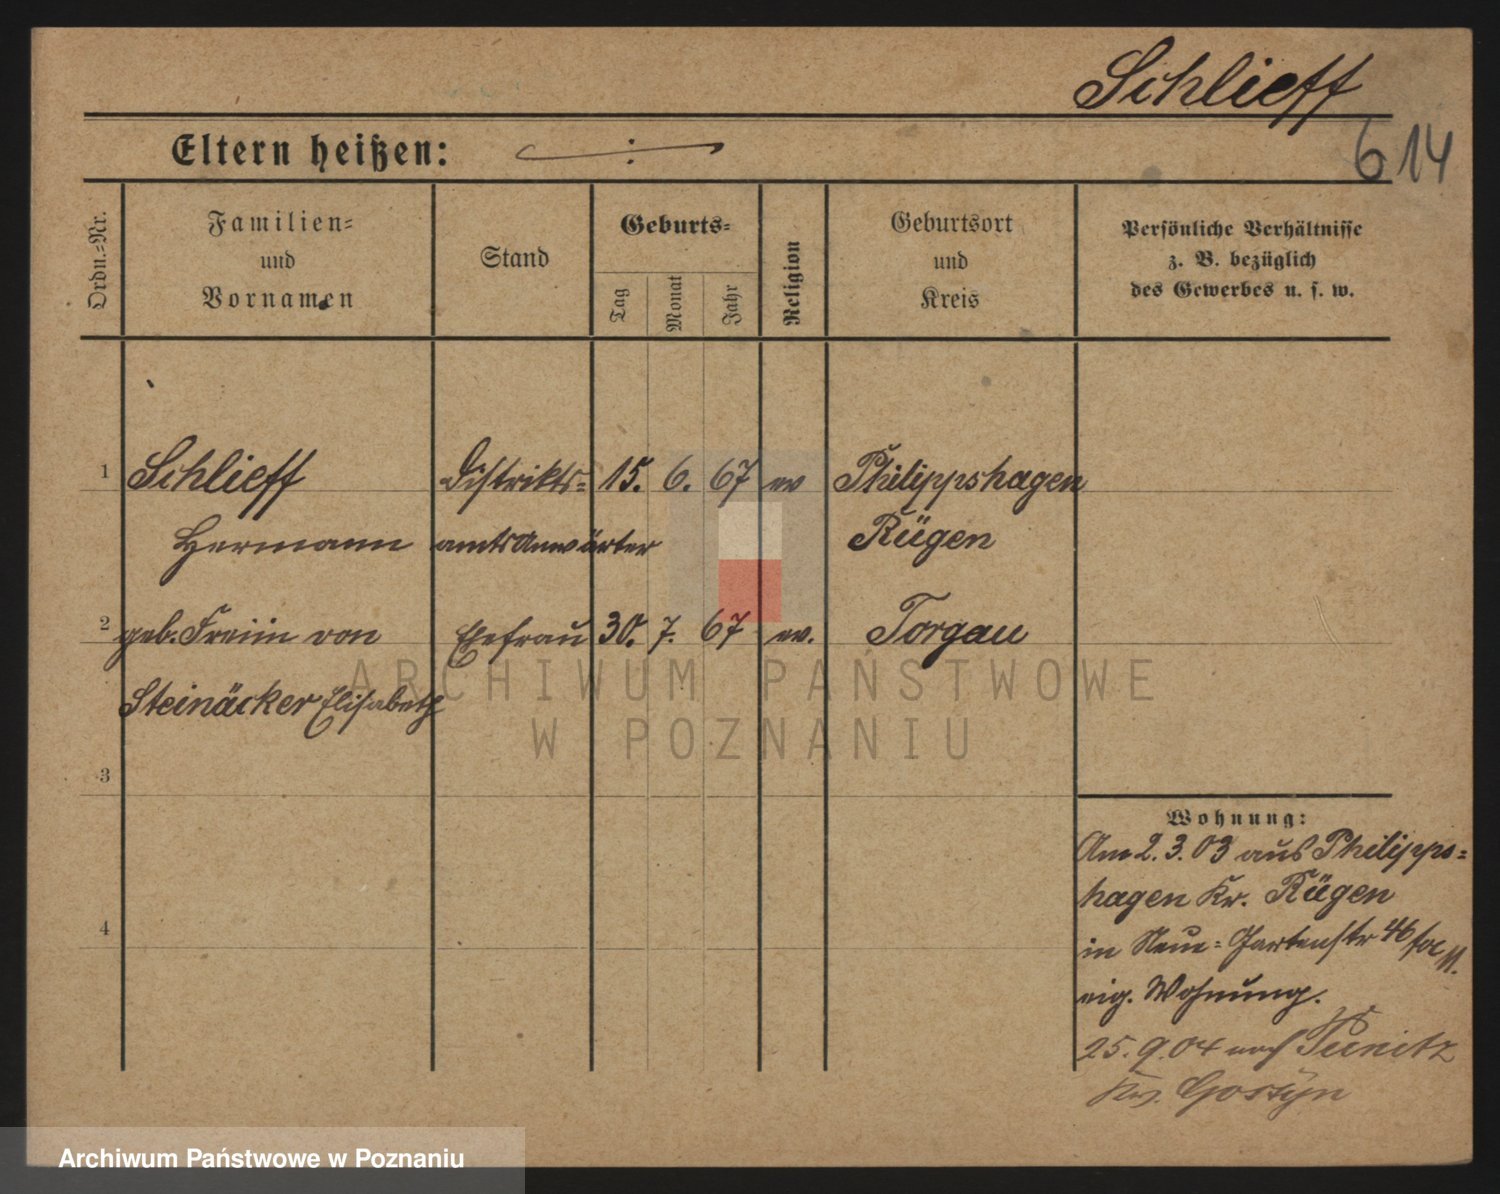 Schlieff
614
Eltern heißen: ⁒
Ordn.-Nr.
Familien-
und
Vornamen
Stand
Geburts-
Tag
Monat
Jahr
Religion
Geburtsort
und
Kreis
Persönliche Verhältnisse
z. B. bezüglich
des Gewerbes u. s. w.
1 Schlieff Distrikts- 15. 6. 67 ev Philippshagen
Hermann amtsAnwärter Rügen
2 geb. Freiin von Ehefrau 30. 7. 67 ev. Torgau
Steinäcker Elisabeth
3
4
Wohnung:
Am 2.3.03 aus Philipps-
hagen Kr. Rügen
in Neue-Gartenstr 46
eig. Wohnung.
25.9.04 nach Punitz
Kr. Gostyn
ARCHIWUM PAŃSTWOWE
W POZNANIU
Archiwum Państwowe w Poznaniu